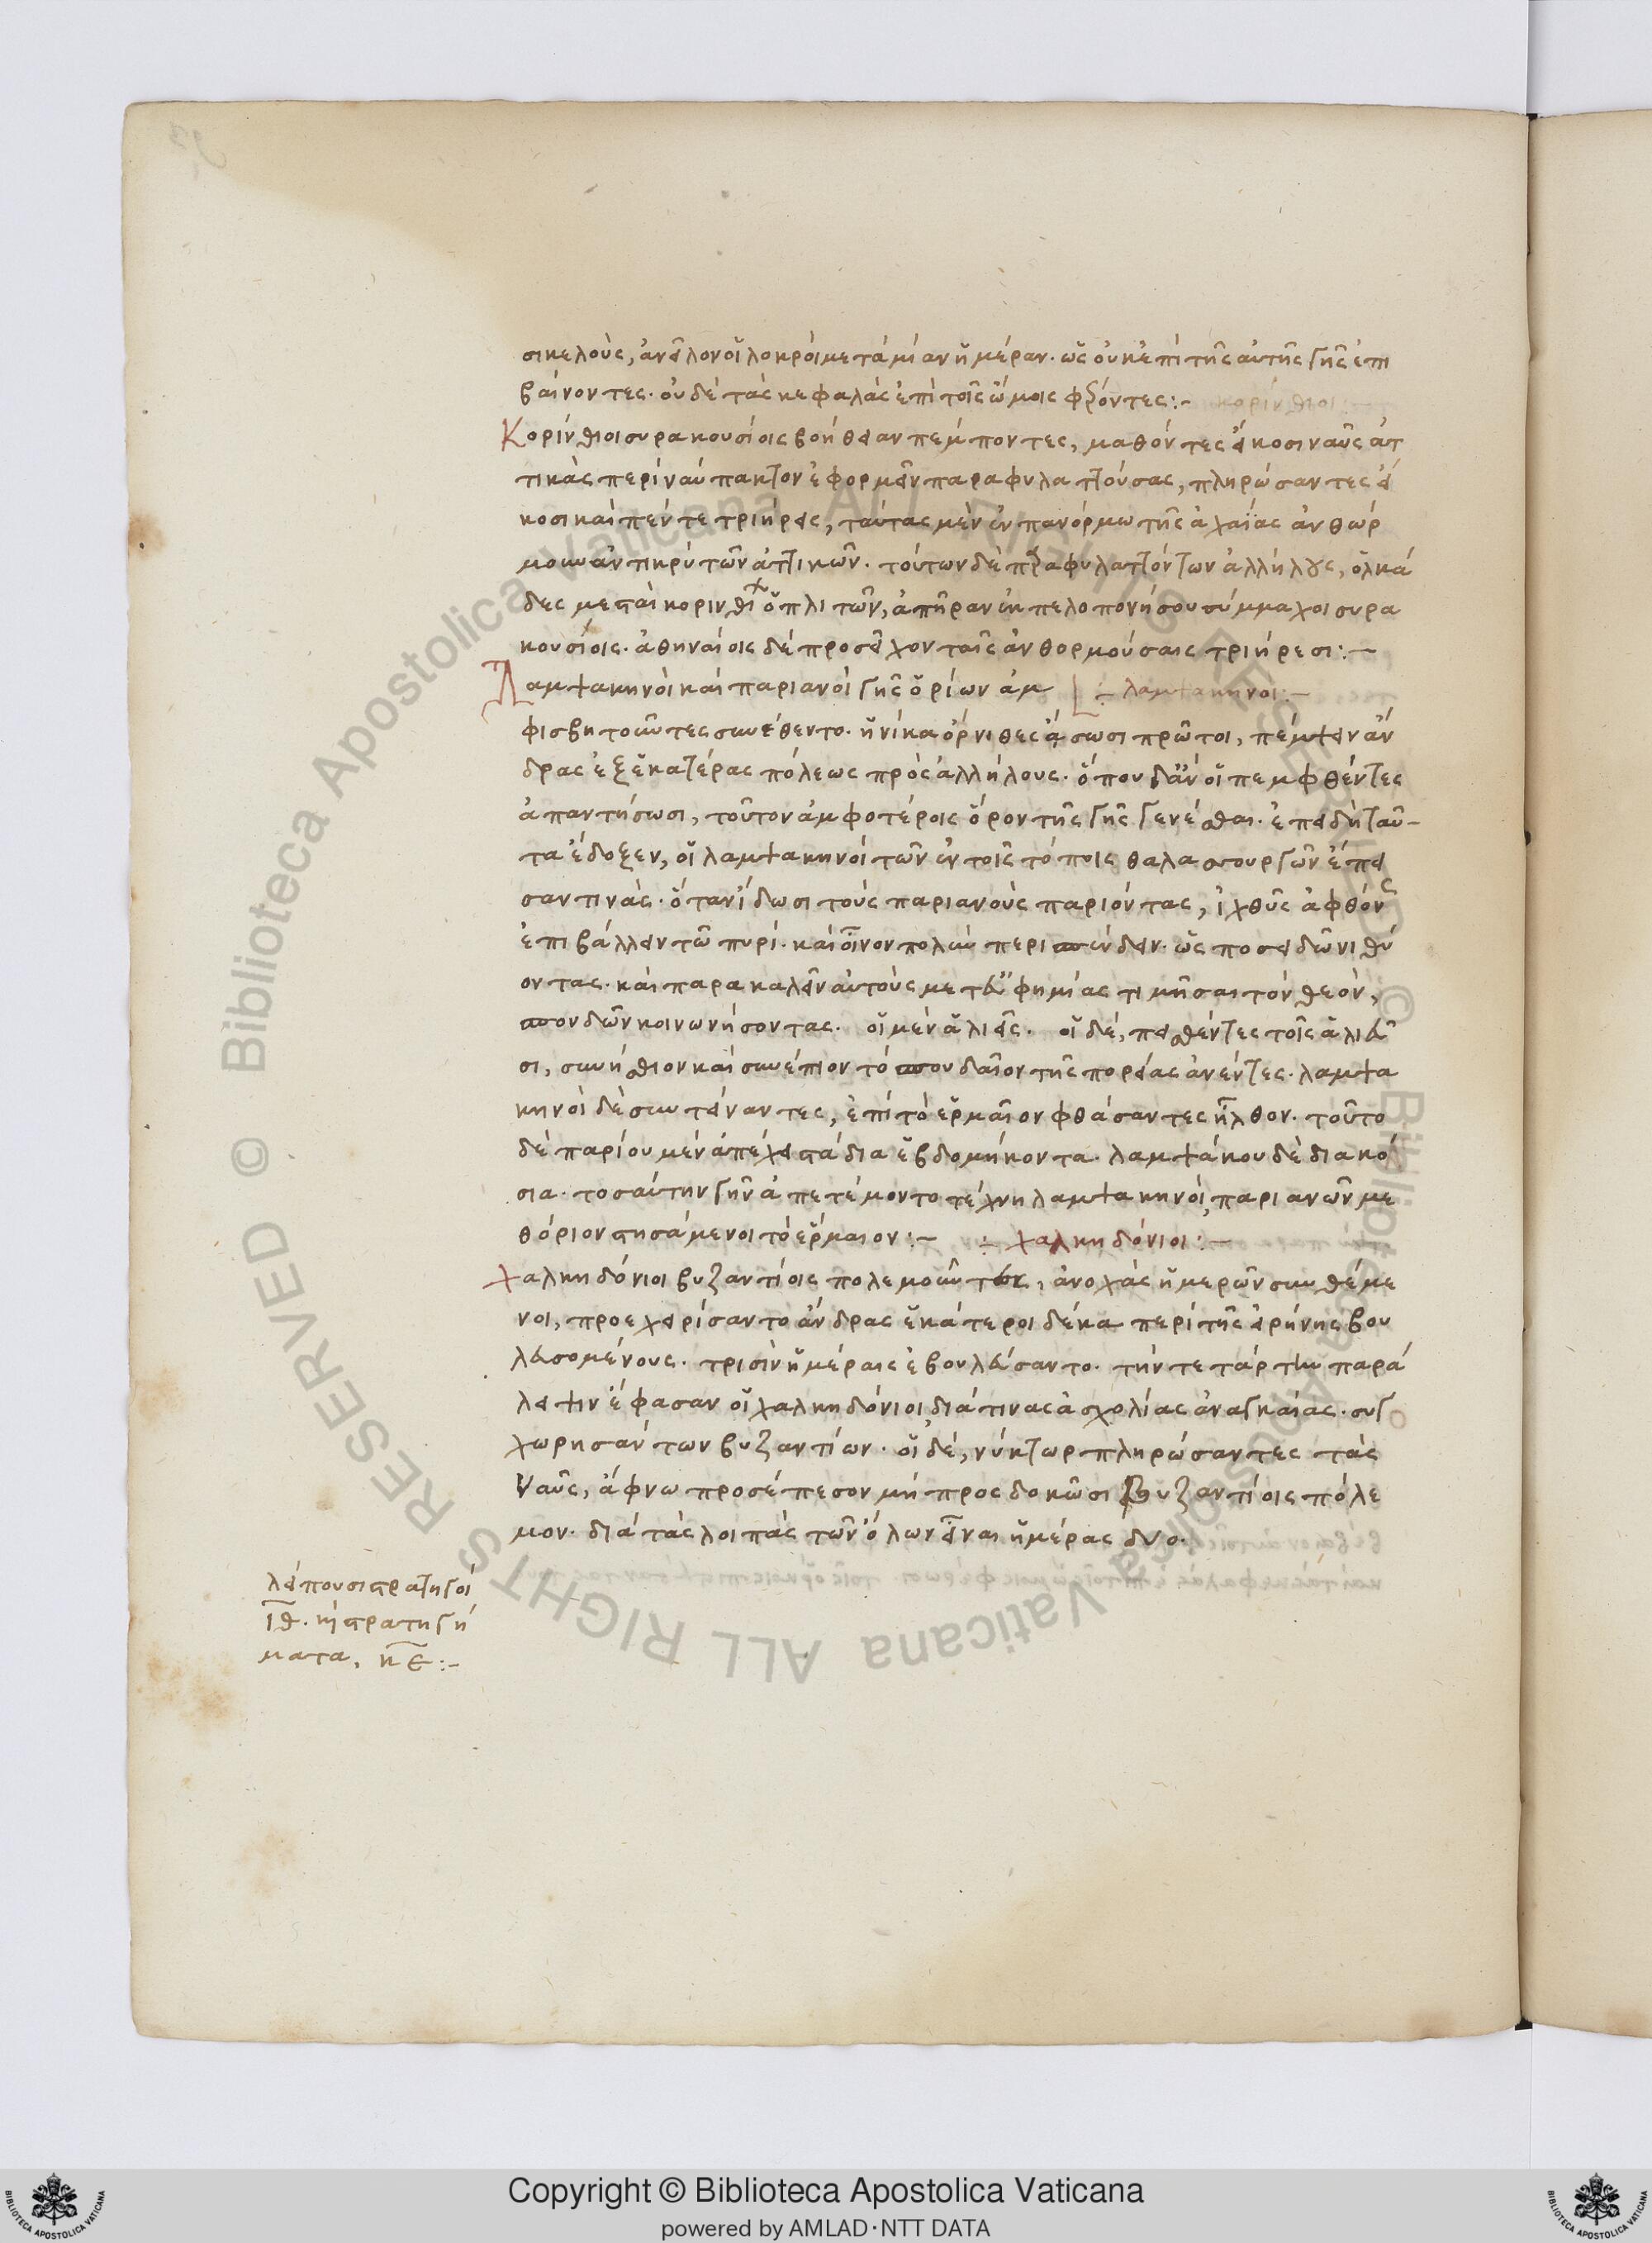 σικελοὺς, ἀνεῖλον οἵ λοκροὶ μετὰ μίαν ἡμέραν. ὡς οὐκ ἐπὶ τῆς αὐτῆς γῆς ἐπι
βαίνοντες. οὐδὲ τὰς κεφαλὰς ἐπὶ τοῖς ὤμοις φέροντες:-
Κορίνθιοι συρακουσίοις βοήθειαν πέμποντες, μαθόντες εἴκοσι ναῦς ἀτ
τικὰς περὶ ναύπακτον ἐφορμεῖν παραφυλαττούσας, πληρώσαντες εἴ
κοσι καὶ πέντε τριήρεις, ταύτας μὲν ἐν πανόρμω τῆς ἀχαΐας ἀνθώρ
μουν ἀντικρὺ τῶν ἀττικῶν. τούτων δὲ παραφυλαττόντων ἀλλήλους, ὁλκά
δες μεσταὶ κορινθίων ὁπλιτῶν, ἀπῆραν ἐκ πελοπονήσου σύμμαχοι συρα
κουσίοις. ἀθηναίοις δὲ προσεῖχον ταῖς ἀνθορμούσαις τριήρεσι:-
Λαμψακηνοὶ καὶ παριανοὶ γῆς ὁρίων ἀμ :- λαμψακηνοι:-
φισβητοῦντες συνέθεντο. ἡνίκα ὄρνιθες ᾄσωσι πρῶτοι, πέμψειν ἄν
δρας ἐξ ἑκατέρας πόλεως πρὸς ἀλλήλους. ὅπου δ' ἂν οἱ πεμφθέντες
ἀπαντήσωσι, τοῦτον ἀμφοτέροις ὅρον τῆς γῆς γενέσθαι. ἐπειδὴ ταῦ-
τα ἔδοξεν, οἱ λαμψακηνοὶ τῶν ἐν τοῖς τόποις θαλασσουργῶν ἔπει
σαν τινὰς. ὅταν ἴδωσι τοὺς παριανοὺς παριόντας, ἰχθῦς ἀφθόνους
ἐπιβάλλειν τῶ πυρί. καὶ οἶνον πολὺν περισπένδειν. ὡς ποσειδῶνι θύ
οντας. καὶ παρακαλεῖν αὐτοὺς μετ' εὐφημίας τιμῆσαι τὸν θεὸν,
σπονδῶν κοινωνήσοντας. οἱ μὲν ἁλιεῖς. οἱ δὲ, πεισθέντες τοῖς ἁλιεῦ
σι, συνήσθιον καὶ συνέπιον τὸ σπουδαῖον τῆς πορείας ἀνέντες. λαμψα
κηνοὶ δὲ συντείναντες, ἐπὶ τὸ ἑρμαῖον φθάσαντες ἦλθον. τοῦτο
δὲ παρίου μὲν ἀπέχει στάδια ἑβδομήκοντα. λαμψάκου δὲ διακό
σια. τοσαύτην γῆν ἀπετέμοντο τέχνη λαμψακηνοὶ, παριανῶν με
θόριον στησάμενοι τὸ ἕρμαιον:- :- χαλκηδόνιοι:-
χαλκηδόνιοι βυζαντίοις πολεμοῦντες, ἀνοχὰς ἡμερῶν συνθέμε
νοι, προεχειρίσαντο ἄνδρας ἑκάτεροι δέκα περὶ τῆς εἰρήνης βου
λευσομένους. τρισὶν ἡμέραις ἐβουλεύσαντο. τὴν τετάρτην παρά
λειψιν ἔφασαν οἱ χαλκηδόνιοι διά τινας ἀσχολίας ἀναγκαίας. συγ
χωρησάντων βυζαντίων. οἱ δὲ, νύκτωρ πληρώσαντες τὰς
ναῦς, ἄφνω προσέπεσον μὴ προσδοκῶσι βυζαντίοις πόλε
μον. διὰ τὰς λοιπὰς τῶν ὅλων εἶναι ἡμέρας δυο.
λείπουσι στρατηγοὶ
ιθ. κὶ στρατηγή
ματα, κε:-